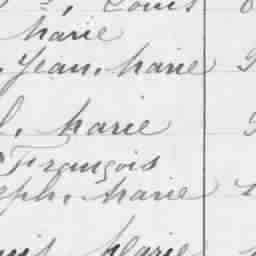 Louis
Marie
Jean, Marie
l, Marie
François
eph, Marie
Marie